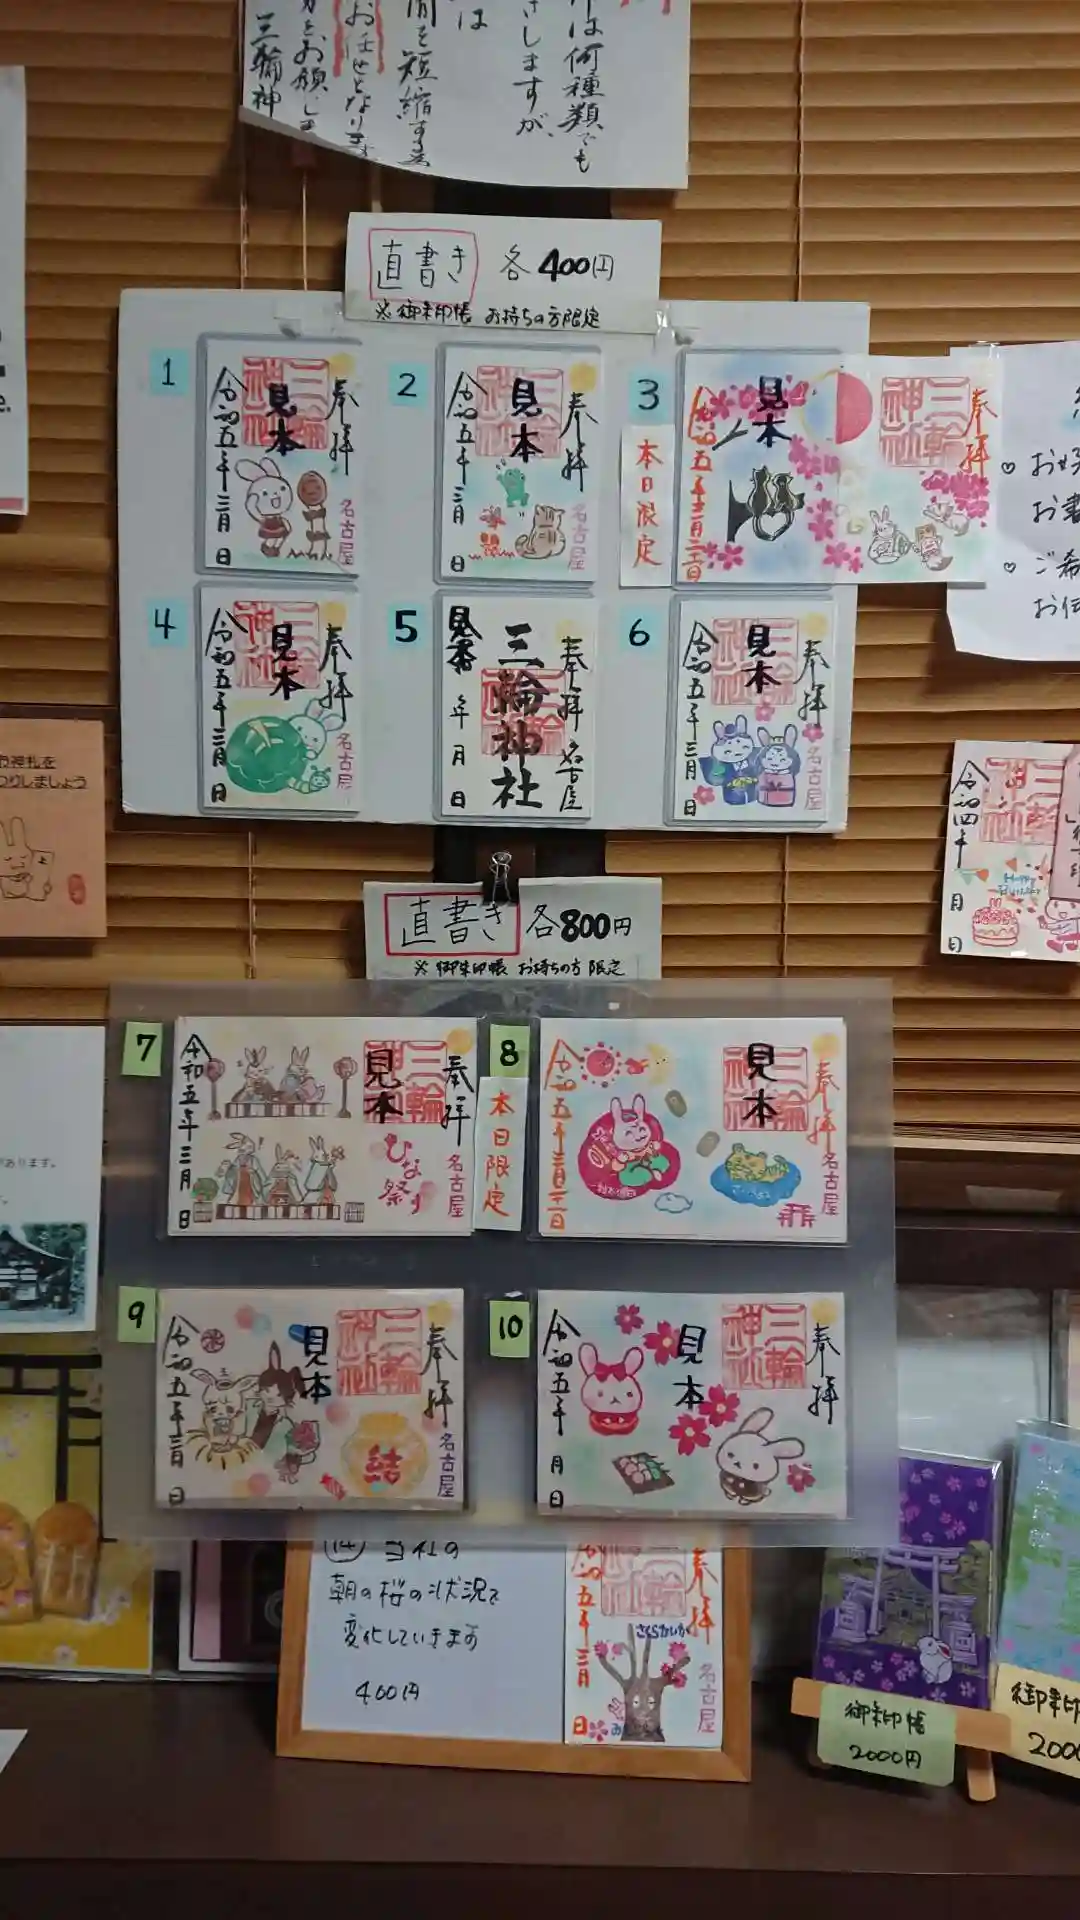 は何種類でも
しますが、
は
間を短縮する為
お任せとなります
三輪神
直書き 各400円
※御朱印帳 お持ちの方限定
1
奉拝
三輪神社
見本
令和五年三月 日
名古屋
2
奉拝
三輪神社
見本
令和五年三月 日
名古屋
3
本日限定
奉拝
三輪神社
見本
4
奉拝
三輪神社
見本
令和五年三月 日
名古屋
5
奉拝
名古屋
三輪神社
見本
年 月 日
6
奉拝
三輪神社
見本
令和五年三月 日
名古屋
お書
ご希
お伝
お神札を
りしましょう
令和四年 月 日
Happy
Birthday
直書き 各800円
※御朱印帳 お持ちの方 限定
7
奉拝
三輪神社
見本
令和五年三月 日
ひな祭り
名古屋
8
本日限定
奉拝
三輪神社
見本
名古屋
9
奉拝
三輪神社
見本
令和五年三月 日
結
名古屋
10
奉拝
三輪神社
見本
令和五年 月 日
あります。
当社の
朝の桜の状況で
変化していきます
400円
奉拝
令和五年三月 日
さくらかいか
名古屋
御朱印帳
2000円
御朱印
200